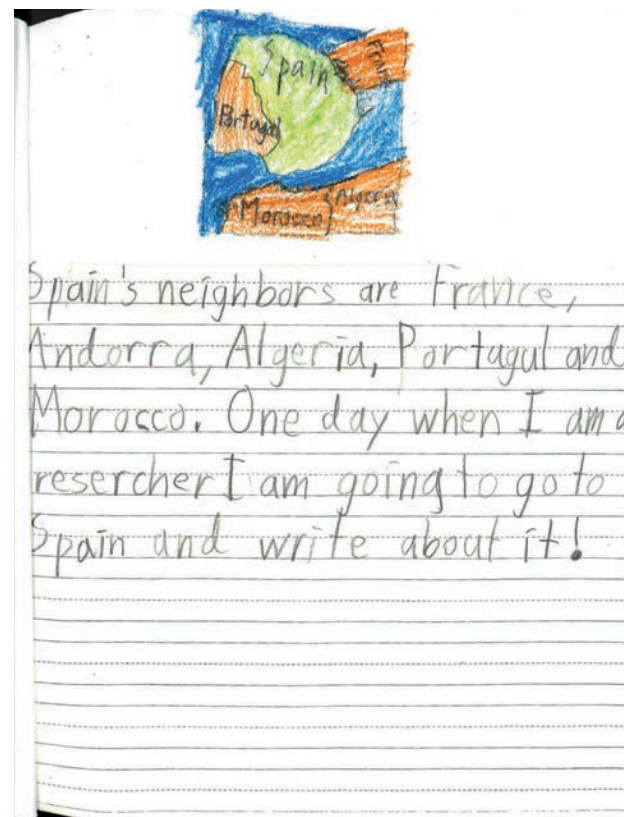 Spain
France
Portugal
Morocco
Algeria
Spain's neighbors are France,
Andorra, Algeria, Portugul and
Morosco. One day when I am a
resercher I am going to go to
Spain and write about it!